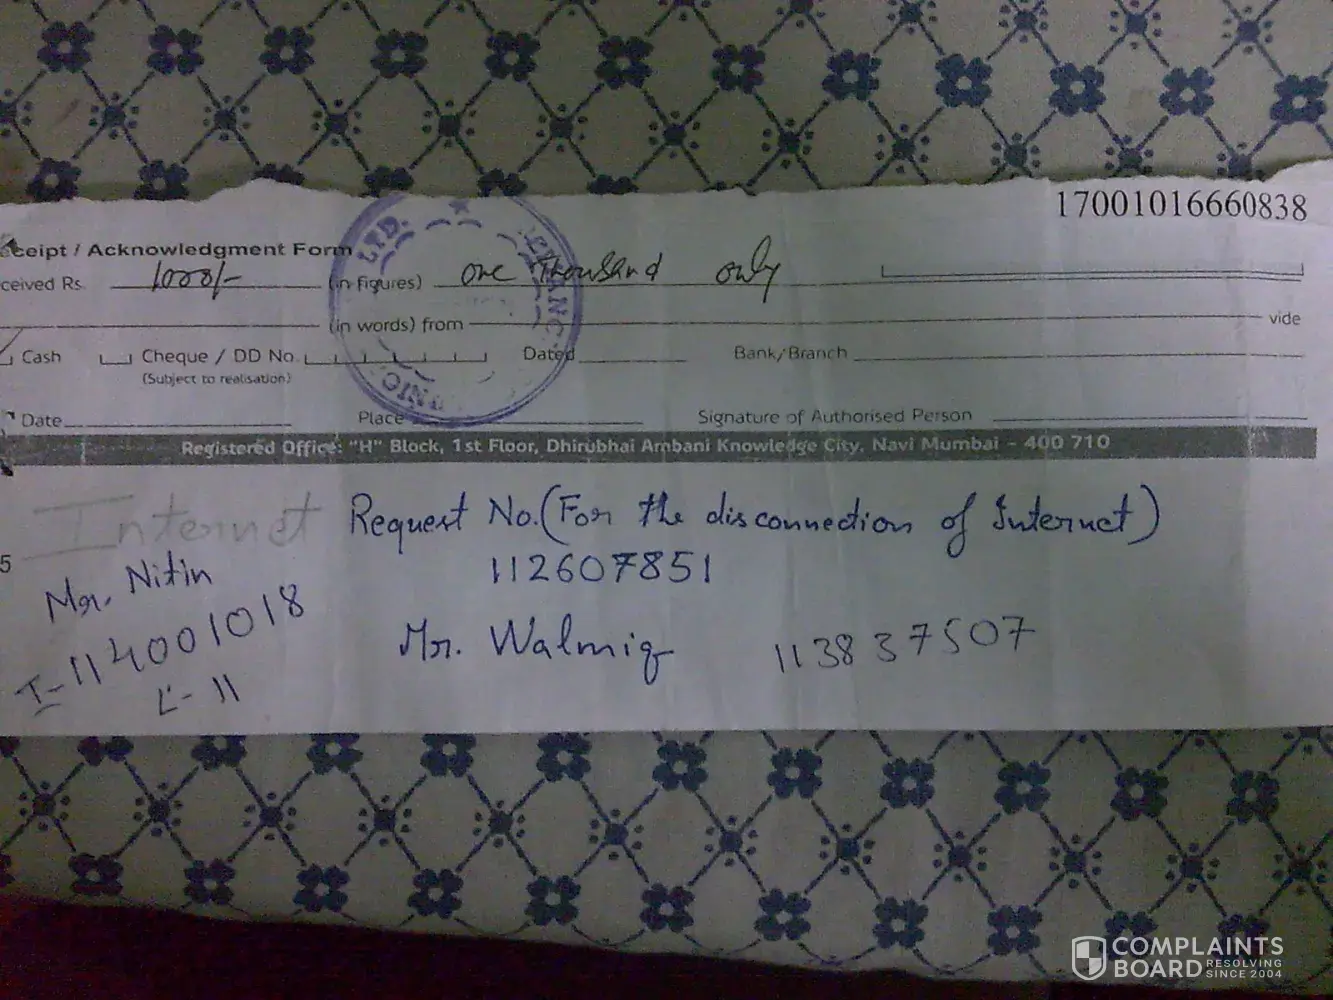 17001016660838
eceipt / Acknowledgment Form
ceived Rs. 1000/- (in figures) one Thousand only
(in words) from vide
Cash Cheque / DD No. Dated Bank/Branch
(Subject to realisation)
Date Place Signature of Authorised Person
LTD.
Registered Office: "H" Block, 1st Floor, Dhirubhai Ambani Knowledge City, Navi Mumbai - 400 710
Internet Request No. (For the disconnection of Internet)
5
112607851
Mr. Nitin
I-114001018
L-11
Mr. Walmiq 113837507
COMPLAINTS
BOARD RESOLVING
SINCE 2004